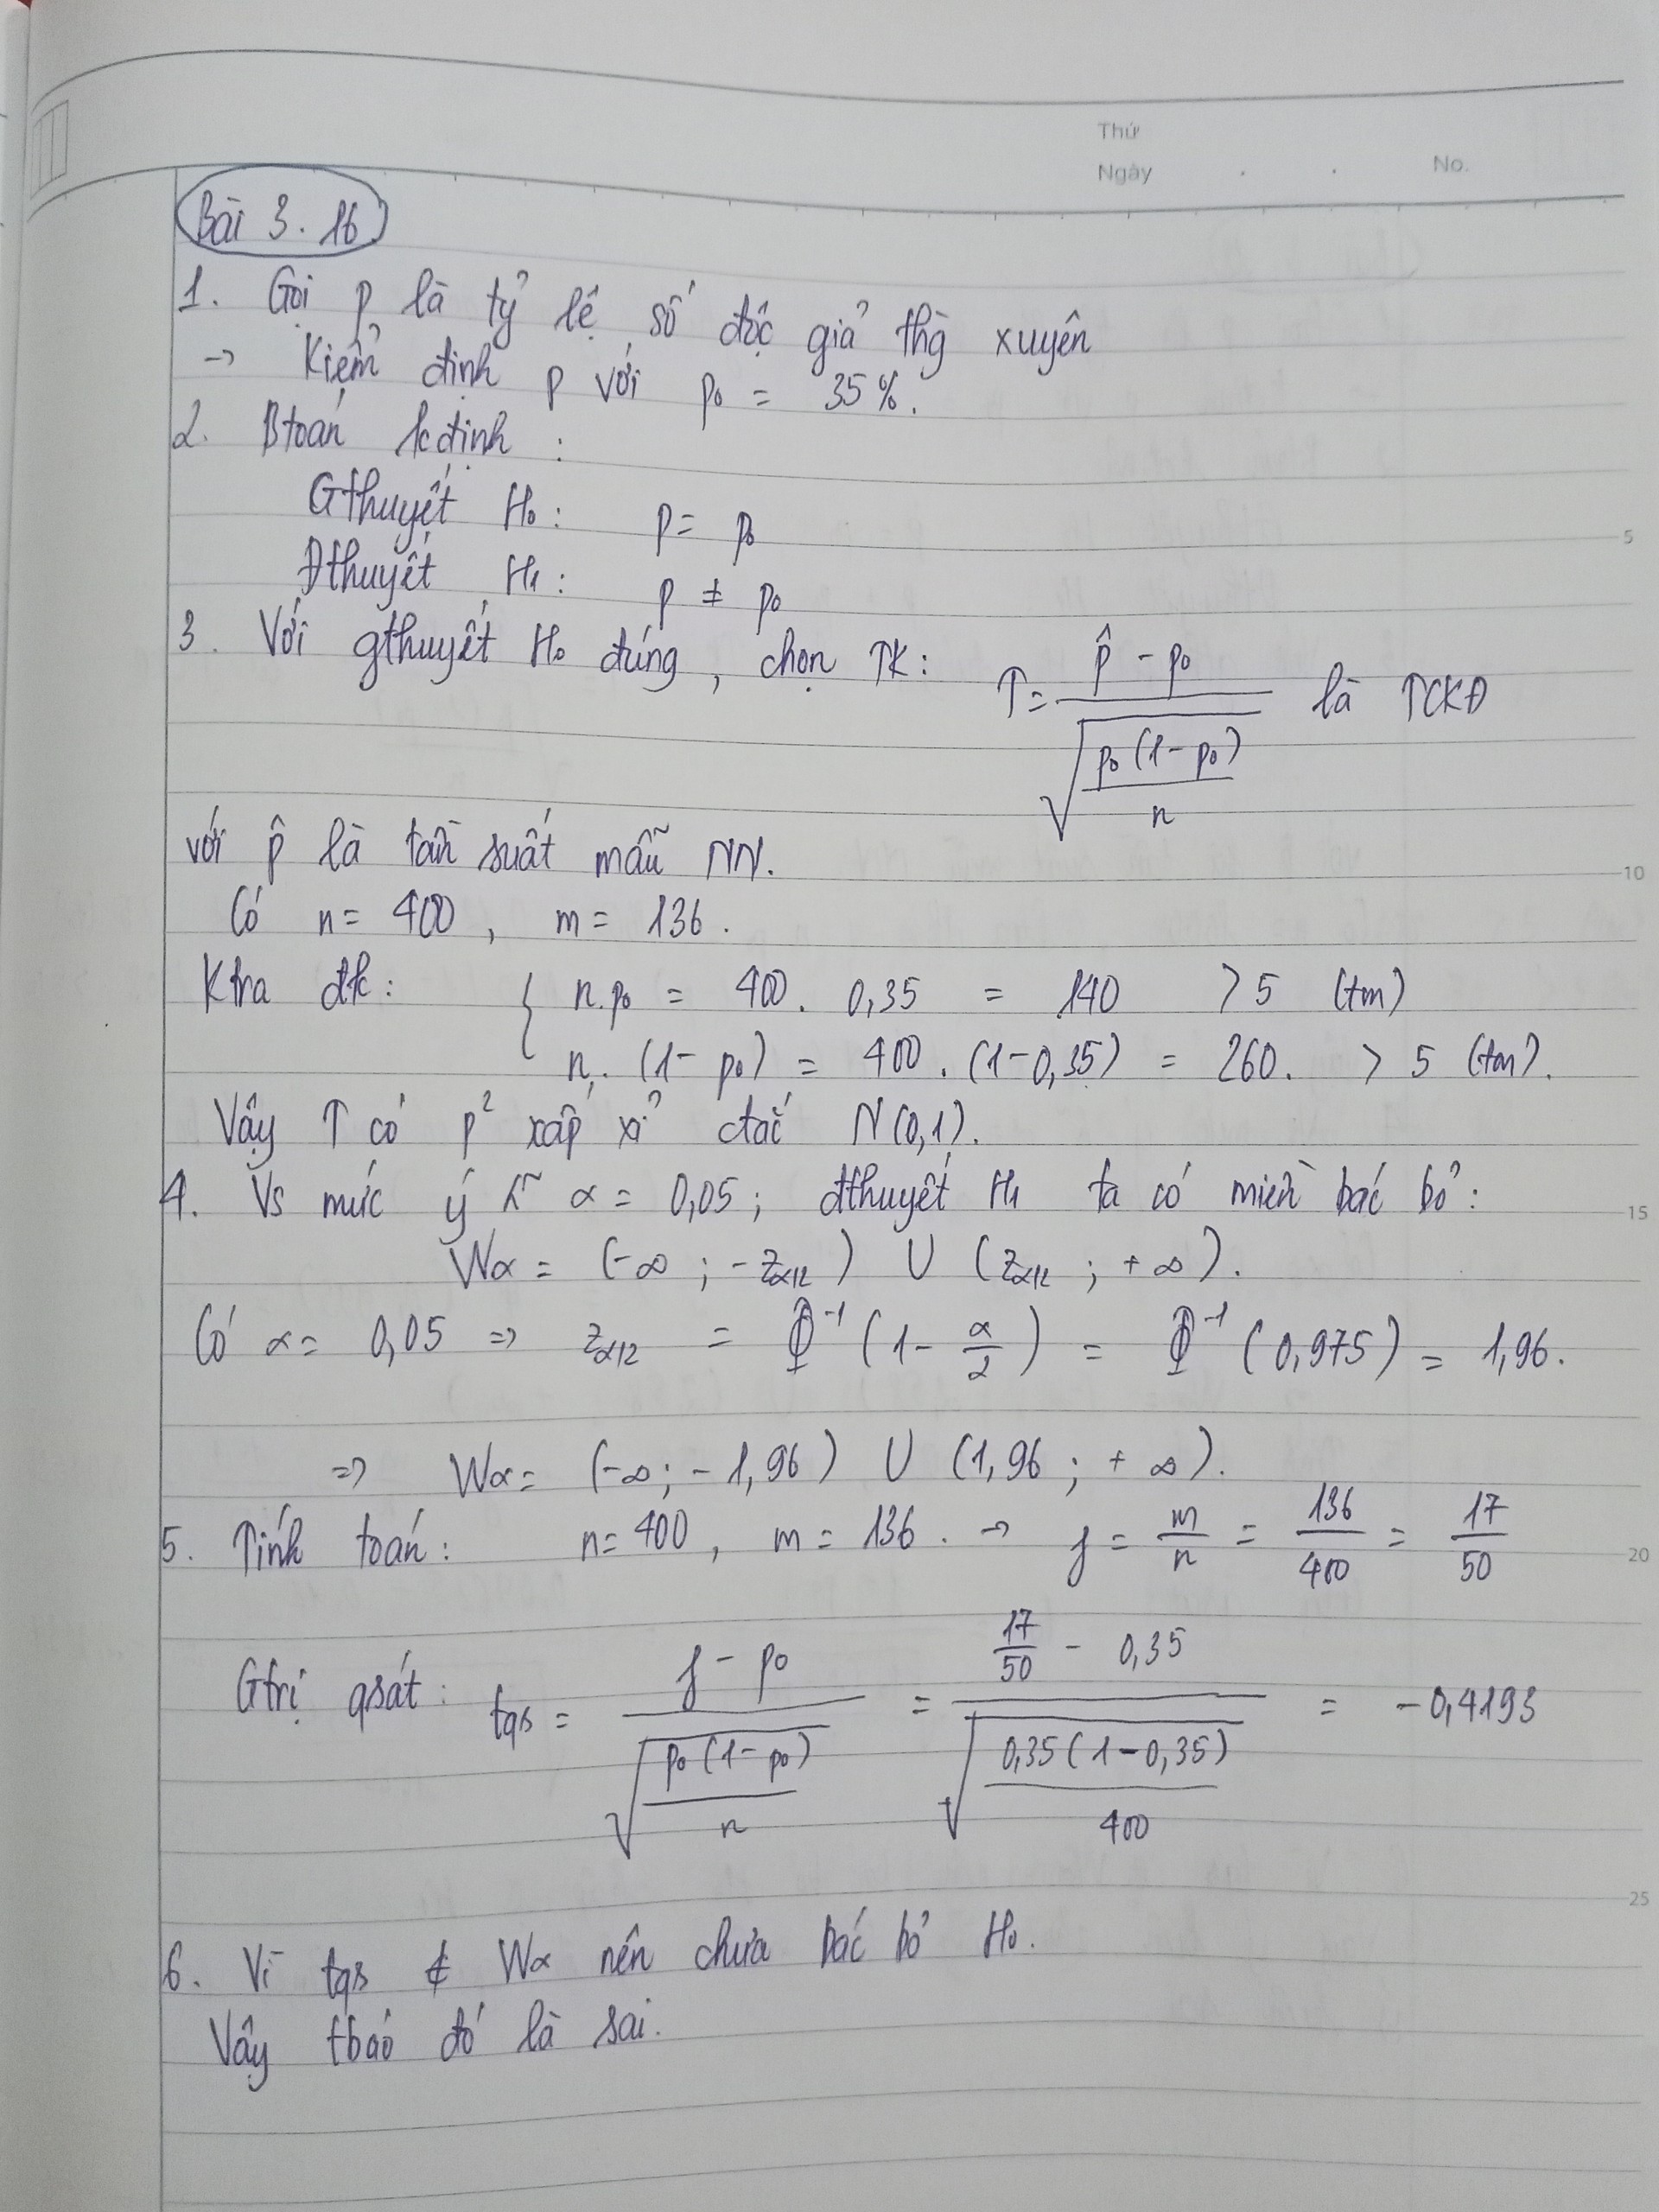 Thứ
Ngày . . No.
Bài 3.16
1. Gọi p là tỷ lệ số độc giả thg xuyên
→ Kiểm định p với p₀ = 35%.
2. Btoán kđịnh :
Gthuyết H₀ : p = p₀
Đthuyết H₁ : p ≠ p₀
3. Với gthuyết H₀ đúng, chọn TK : T = (p̂ - p₀) / √(p₀(1-p₀)/n) là TCKĐ
với p̂ là tần suất mẫu NN.
Có n = 400, m = 136.
Ktra đk : { n.p₀ = 400 . 0,35 = 140 > 5 (tm)
n. (1 - p₀) = 400 . (1-0,35) = 260. > 5 (tm).
Vậy T có p² xấp xỉ ctắc N(0,1).
4. Vs mức ý α = 0,05 ; đthuyết H₁ ta có miền bác bỏ :
Wα = (-∞ ; -z_α/2) ∪ (z_α/2 ; +∞).
Có α = 0,05 ⇒ z_α/2 = Φ⁻¹(1 - α/2) = Φ⁻¹(0,975) = 1,96.
⇒ Wα = (-∞ ; -1,96) ∪ (1,96 ; +∞).
5. Tính toán : n = 400, m = 136. → f = m/n = 136/400 = 17/50
Gtrị qsát : tqs = (f - p₀) / √(p₀(1-p₀)/n) = (17/50 - 0,35) / √(0,35(1-0,35)/400) = -0,4193
6. Vì tqs ∉ Wα nên chưa bác bỏ H₀.
Vậy tbáo đó là sai.
5
10
15
20
25